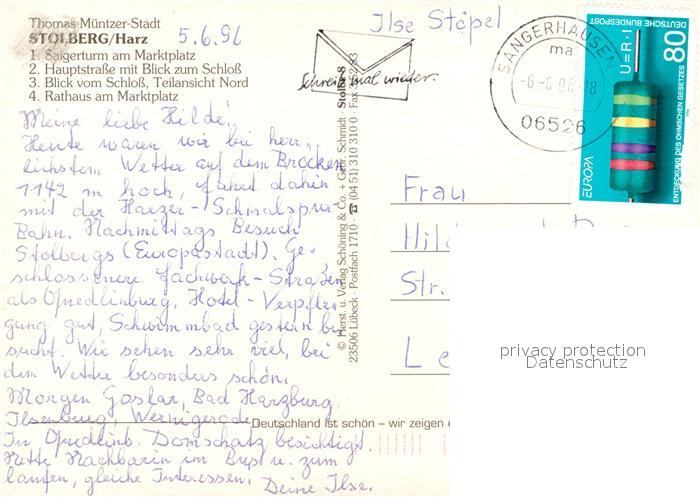 Thomas Müntzer-Stadt
STOLBERG/Harz
1. Saigerturm am Marktplatz
2. Hauptstraße mit Blick zum Schloß
3. Blick vom Schloß, Teilansicht Nord
4. Rathaus am Marktplatz
5.6.96
Ilse Stöpel
Schreib mal wieder.
SANGERHAUSEN
ma
-6.-6.96-18
06526
DEUTSCHE BUNDESPOST
80
U=R·I
EUROPA
ENTDECKUNG DES OHMSCHEN GESETZES
Meine liebe Hilde!
Heute waren wir bei herr,,
lichstem Wetter auf dem Brocken
1142 m hoch, fahrt dahin
mit der Harzer-Schmalspur-
Bahn. Nachmittags Besuch
Stolbergs (Europastadt). Ge-
schlossenere Fachwerk-Straßen
als Quedlinburg. Hotel-Verpfle-
gung gut, Schwimmbad gestern be
sucht. Wir sehen sehr viel, bei
dem Wetter besonders schön.
Morgen Goslar, Bad Harzburg,
Ilsenburg, Wernigerode
In Quedlinb. Domschatz besichtigt.
Nette Nachbarin im Bus u. zum
laufen, gleiche Interessen.
Deine Ilse.
© Herst. u. Verlag Schöning & Co. + Gebr. Schmidt · Stolbg 8
23506 Lübeck · Postfach 1710 · ☎ (04 51) 310 310 0 · Fax
Frau
Hil
Str.
Le
Deutschland ist schön – wir zeigen
privacy protection
Datenschutz